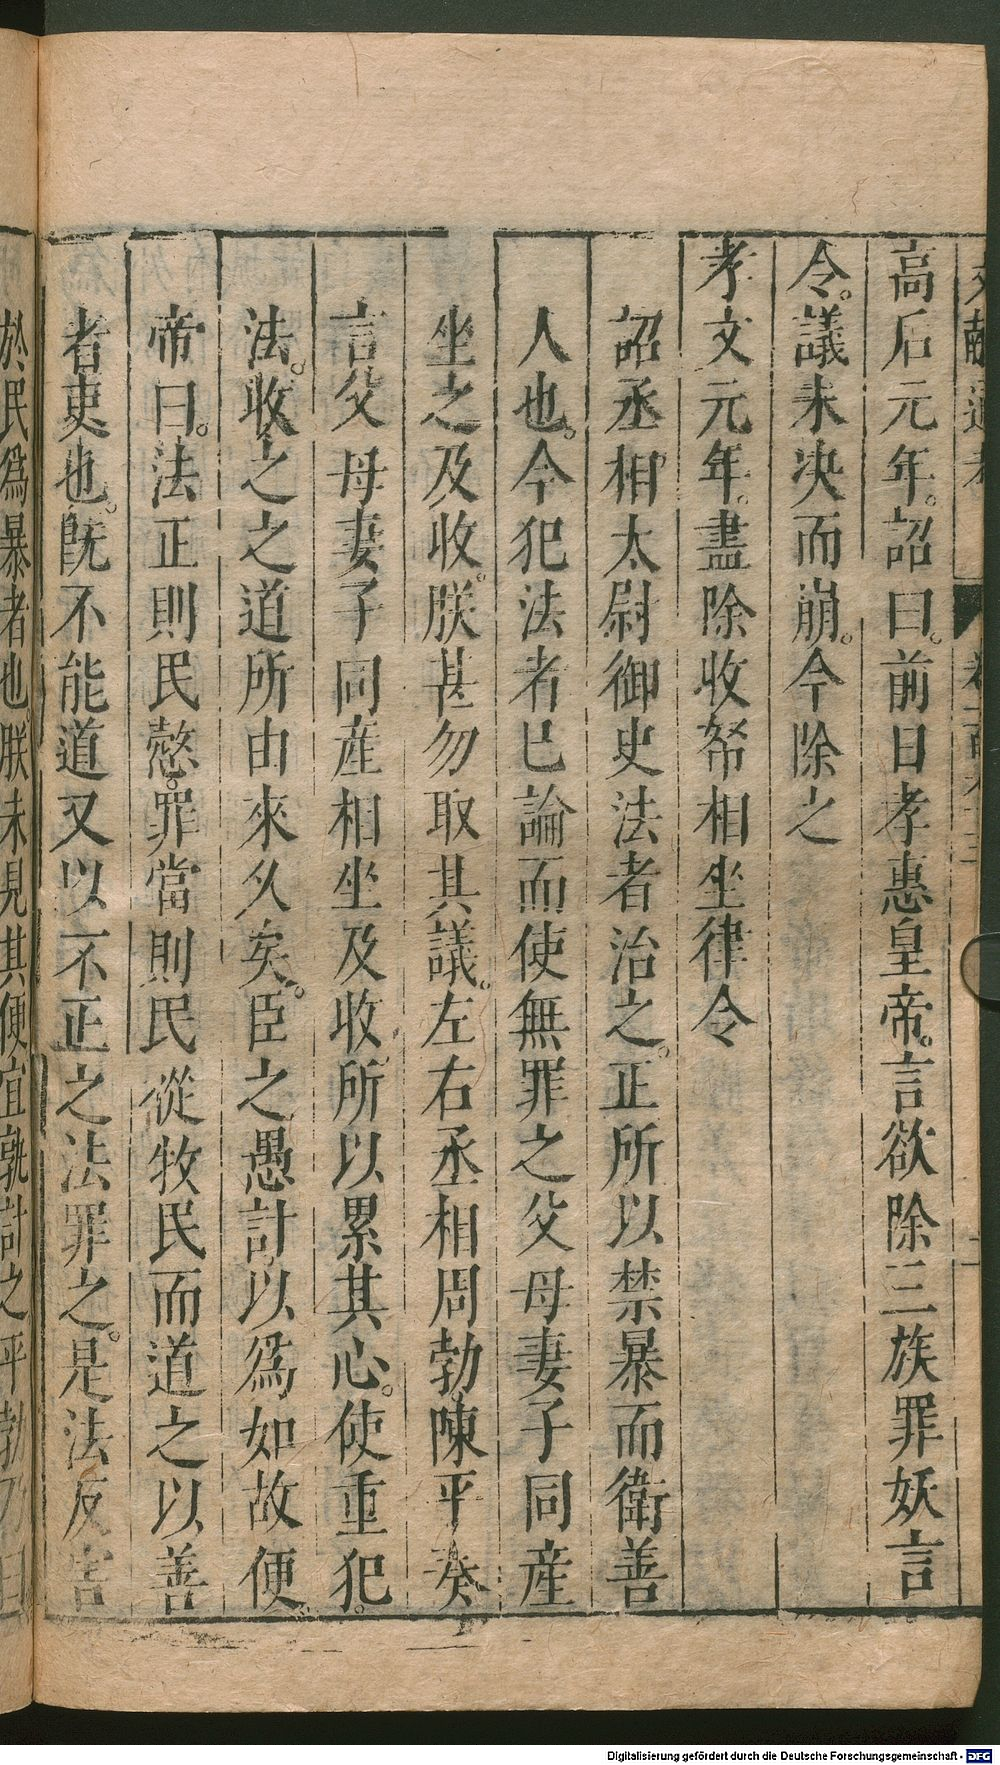 高后元年。詔曰。前日孝惠皇帝。言欲除三族罪妖言
令。議未决而崩。今除之
孝文元年。盡除收帑相坐律令
詔丞相太尉御史法者治之。正所以禁暴而衛善
人也。今犯法者已論而使無罪之父母妻子同産
坐之及收。朕甚勿取其議。左右丞相周勃陳平奏
言父母妻子同産相坐及收所以累其心。使重犯。
法。收之之道所由來久矣。臣之愚計以爲如故便。
帝曰。法正則民慤。罪當則民從牧民而道之以善
者吏也。旣不能道又以不正之法罪之。是法反害
於民爲暴者也。朕未見其便宜孰計之平勃乃曰
Digitalisierung gefördert durch die Deutsche Forschungsgemeinschaft - DFG